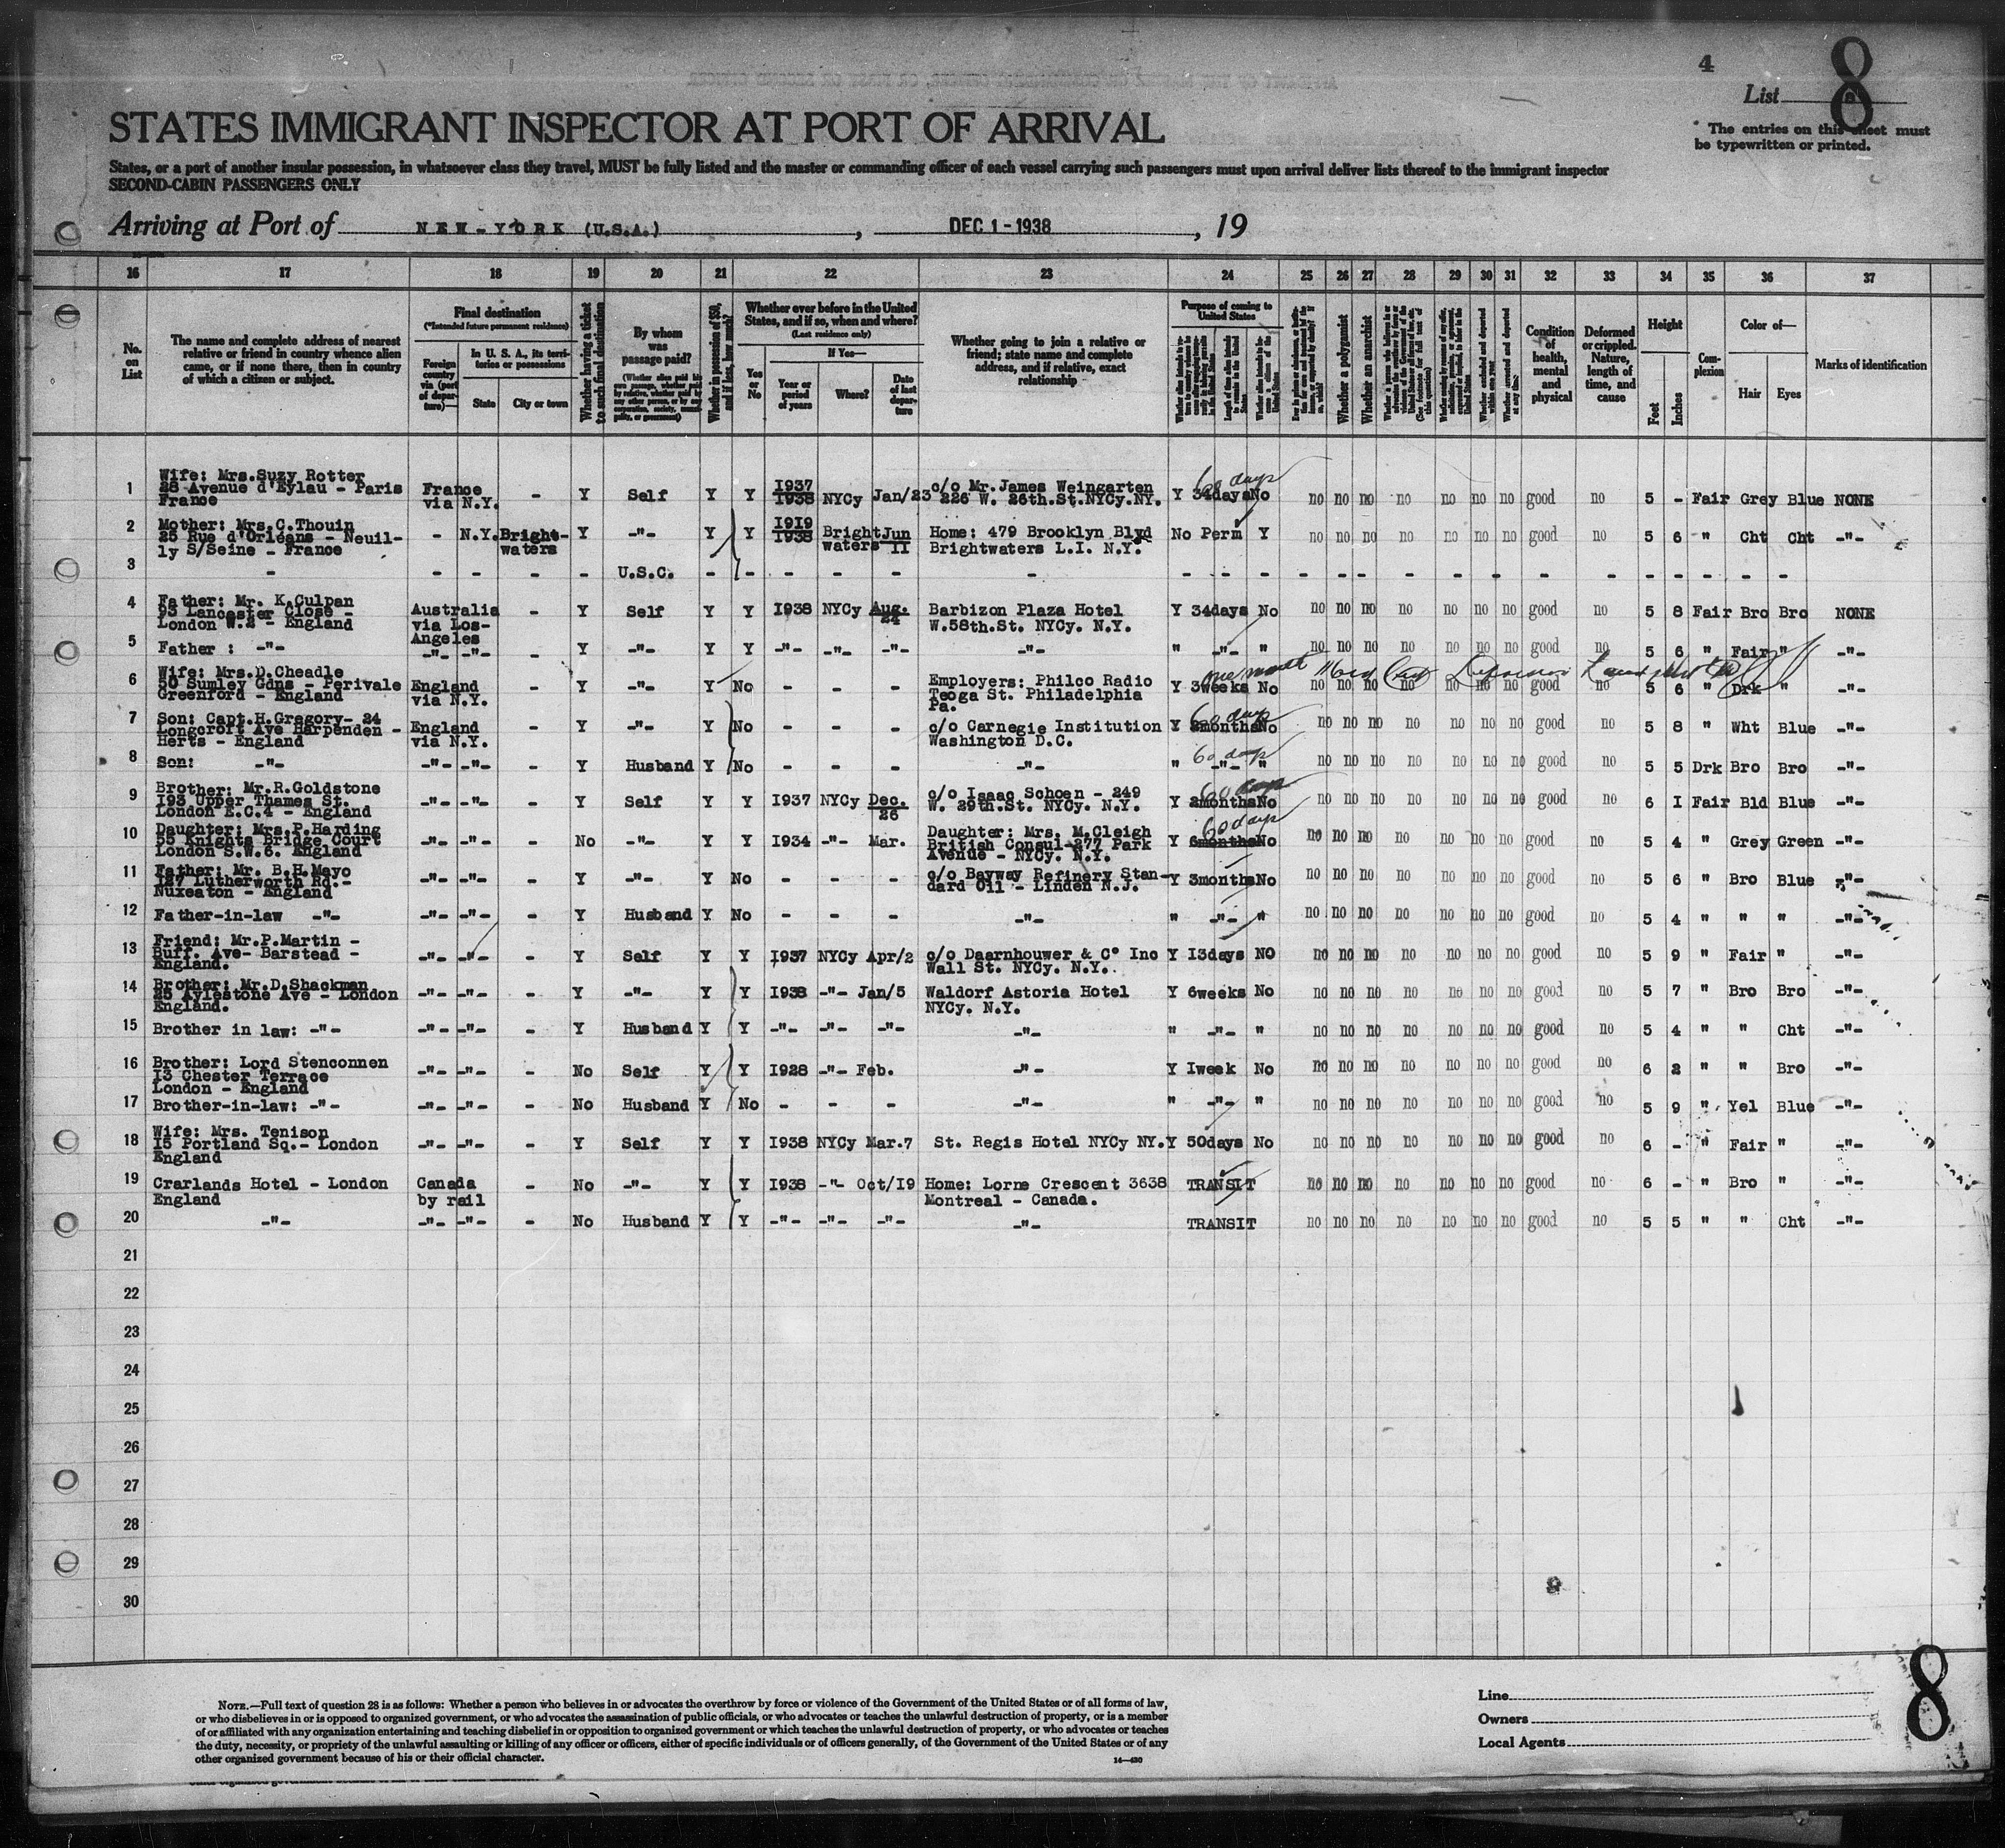 4
List 8
STATES IMMIGRANT INSPECTOR AT PORT OF ARRIVAL
* The entries on this sheet must
be typewritten or printed.
States, or a port of another insular possession, in whatsoever class they travel, MUST be fully listed and the master or commanding officer of each vessel carrying such passengers must upon arrival deliver lists thereof to the immigrant inspector
SECOND-CABIN PASSENGERS ONLY
Arriving at Port of NEW-YORK (U.S.A.) , DEC 1-1938 , 19
16 17 18 19 20 21 22 23 24 25 26 27 28 29 30 31 32 33 34 35 36 37
No. on List
The name and complete address of nearest relative or friend in country whence alien came, or if none there, then in country of which a citizen or subject.
Final destination
(*Intended future permanent residence)
Foreign country via (port of departure)—
In U. S. A., its territories or possessions
State
City or town
Whether having a ticket to such final destination
By whom was passage paid?
Whether in possession of $50, and if less, how much?
Whether ever before in the United States, and if so, when and where?
(Last residence only)
Yes or No
If Yes—
Year or period of years
Where?
Date of last departure
Whether going to join a relative or friend; state name and complete address, and if relative, exact relationship
Purpose of coming to United States
Whether a polygamist
Whether an anarchist
Condition of health, mental and physical
Deformed or crippled. Nature, length of time, and cause
Height
Feet
Inches
Complexion
Color of—
Hair
Eyes
Marks of identification
60 days
1 Wife: Mrs.Suzy Rotter
28 Avenue d'Eylau - Paris
France
France
via N.Y. - Y Self Y Y 1937
1938 NYCy Jan/23 c/o Mr.James Weingarten
226 W. 26th.St.NYCy.NY. Y 34days No no no no no no no no good no 5 - Fair Grey Blue NONE
2 Mother: Mrs.C.Thouin
25 Rue d'Orléans - Neuil-
ly S/Seine - France
- N.Y. Bright-
waters Y -"- Y Y 1919
1938 Bright
waters Jun
11 Home: 479 Brooklyn Blvd
Brightwaters L.I. N.Y. No Perm Y no no no no no no no good no 5 6 " Cht Cht -"-
3 - - - - - U.S.C. - - - - - - - - - - - - - - - - - - - - - - - -
4 Father: Mr. K.Culpan
93 Lancaster Close -
London W.2 - England
Australia
via Los-
Angeles - Y Self Y Y 1938 NYCy Aug.
24 Barbizon Plaza Hotel
W.58th.St. NYCy. N.Y. Y 34days No no no no no no no no good no 5 8 Fair Bro Bro NONE
5 Father : -"- -"- -"- - Y -"- Y Y -"- -"- -"- -"- " -"- " no no no no no no no good no 5 6 " Fair " -"-
one month
6 Wife: Mrs.D.Cheadle
50 Sumley Gdns - Perivale
Greenford - England
England
via N.Y. - Y -"- Y No - - - Employers: Philco Radio
Teoga St. Philadelphia
Pa. Y 3weeks No no no no no no no no good no 5 6 " Drk " -"-
60 days
7 Son: Capt.H.Gregory- 24
Longcroft Ave Harpenden -
Herts - England
England
via N.Y. - Y -"- Y No - - - c/o Carnegie Institution
Washington D.C. Y 2months No no no no no no no no good no 5 8 " Wht Blue -"-
60 days
8 Son: -"- -"- -"- - Y Husband Y No - - - -"- " -"- " no no no no no no no good no 5 5 Drk Bro Bro -"-
60 days
9 Brother: Mr.R.Goldstone
193 Upper Thames St.
London E.C.4 - England
-"- -"- - Y Self Y Y 1937 NYCy Dec.
26 c/o Isaac Schoen - 249
W. 29th.St. NYCy. N.Y. Y 2months No no no no no no no no good no 6 I Fair Bld Blue -"-
60 days
10 Daughter: Mrs.P.Harding
55 Knights Bridge Court
London S.W.6. England
-"- -"- - No -"- Y Y 1934 -"- Mar. Daughter: Mrs. M.Cleigh
British Consul-277 Park
Avenue - NYCy. N.Y. Y 6months No no no no no no no no good no 5 4 " Grey Green -"-
11 Father: Mr. B.H.Mayo
127 Lutherworth Rd.-
Nuxeaton - England
-"- -"- - Y -"- Y No - - - c/o Bayway Refinery Stan-
dard Oil - Linden N.J. Y 3months No no no no no no no no good no 5 6 " Bro Blue -"-
12 Father-in-law -"- -"- -"- - Y Husband Y No - - - -"- " -"- " no no no no no no no good no 5 4 " " " -"-
13 Friend: Mr.P.Martin -
Buff. Ave- Barstead -
England.
-"- -"- - Y Self Y Y 1937 NYCy Apr/2 c/o Daarnhouwer & C° Inc
Wall St. NYCy. N.Y. Y 13days NO no no no no no no no good no 5 9 " Fair " -"-
14 Brother: Mr.D.Shackman
25 Aylestone Ave - London
England.
-"- -"- - Y -"- Y Y 1938 -"- Jan/5 Waldorf Astoria Hotel
NYCy. N.Y. Y 6weeks No no no no no no no no good no 5 7 " Bro Bro -"-
15 Brother in law: -"- -"- -"- - Y Husband Y Y -"- -"- -"- -"- " -"- " no no no no no no no good no 5 4 " " Cht -"-
16 Brother: Lord Stenconnen
13 Chester Terrace
London - England
-"- -"- - No Self Y Y 1928 -"- Feb. -"- Y 1week No no no no no no no no good no 6 2 " " Bro -"-
17 Brother-in-law: -"- -"- -"- - No Husband Y No - - - -"- " -"- " no no no no no no no good no 5 9 " Yel Blue -"-
18 Wife: Mrs. Tenison
15 Portland Sq.- London
England
-"- -"- - Y Self Y Y 1938 NYCy Mar.7 St. Regis Hotel NYCy NY. Y 50days No no no no no no no no good no 6 - " Fair " -"-
19 Crarlands Hotel - London
England
Canada
by rail - No -"- Y Y 1938 -"- Oct/19 Home: Lorne Crescent 3638
Montreal - Canada. TRANSIT no no no no no no no good no 6 - " Bro " -"-
20 -"- -"- -"- - No Husband Y Y -"- -"- -"- -"- TRANSIT no no no no no no no good no 5 5 " " Cht -"-
21
22
23
24
25
26
27
28
29
30
NOTE.—Full text of question 28 is as follows: Whether a person who believes in or advocates the overthrow by force or violence of the Government of the United States or of all forms of law,
or who disbelieves in or is opposed to organized government, or who advocates the assassination of public officials, or who advocates or teaches the unlawful destruction of property, or is a member
of or affiliated with any organization entertaining and teaching disbelief in or opposition to organized government or which teaches the unlawful destruction of property, or who advocates or teaches
the duty, necessity, or propriety of the unlawful assaulting or killing of any officer or officers, either of specific individuals or of officers generally, of the Government of the United States or of any
other organized government because of his or their official character.
14—430
Line
Owners
Local Agents
8